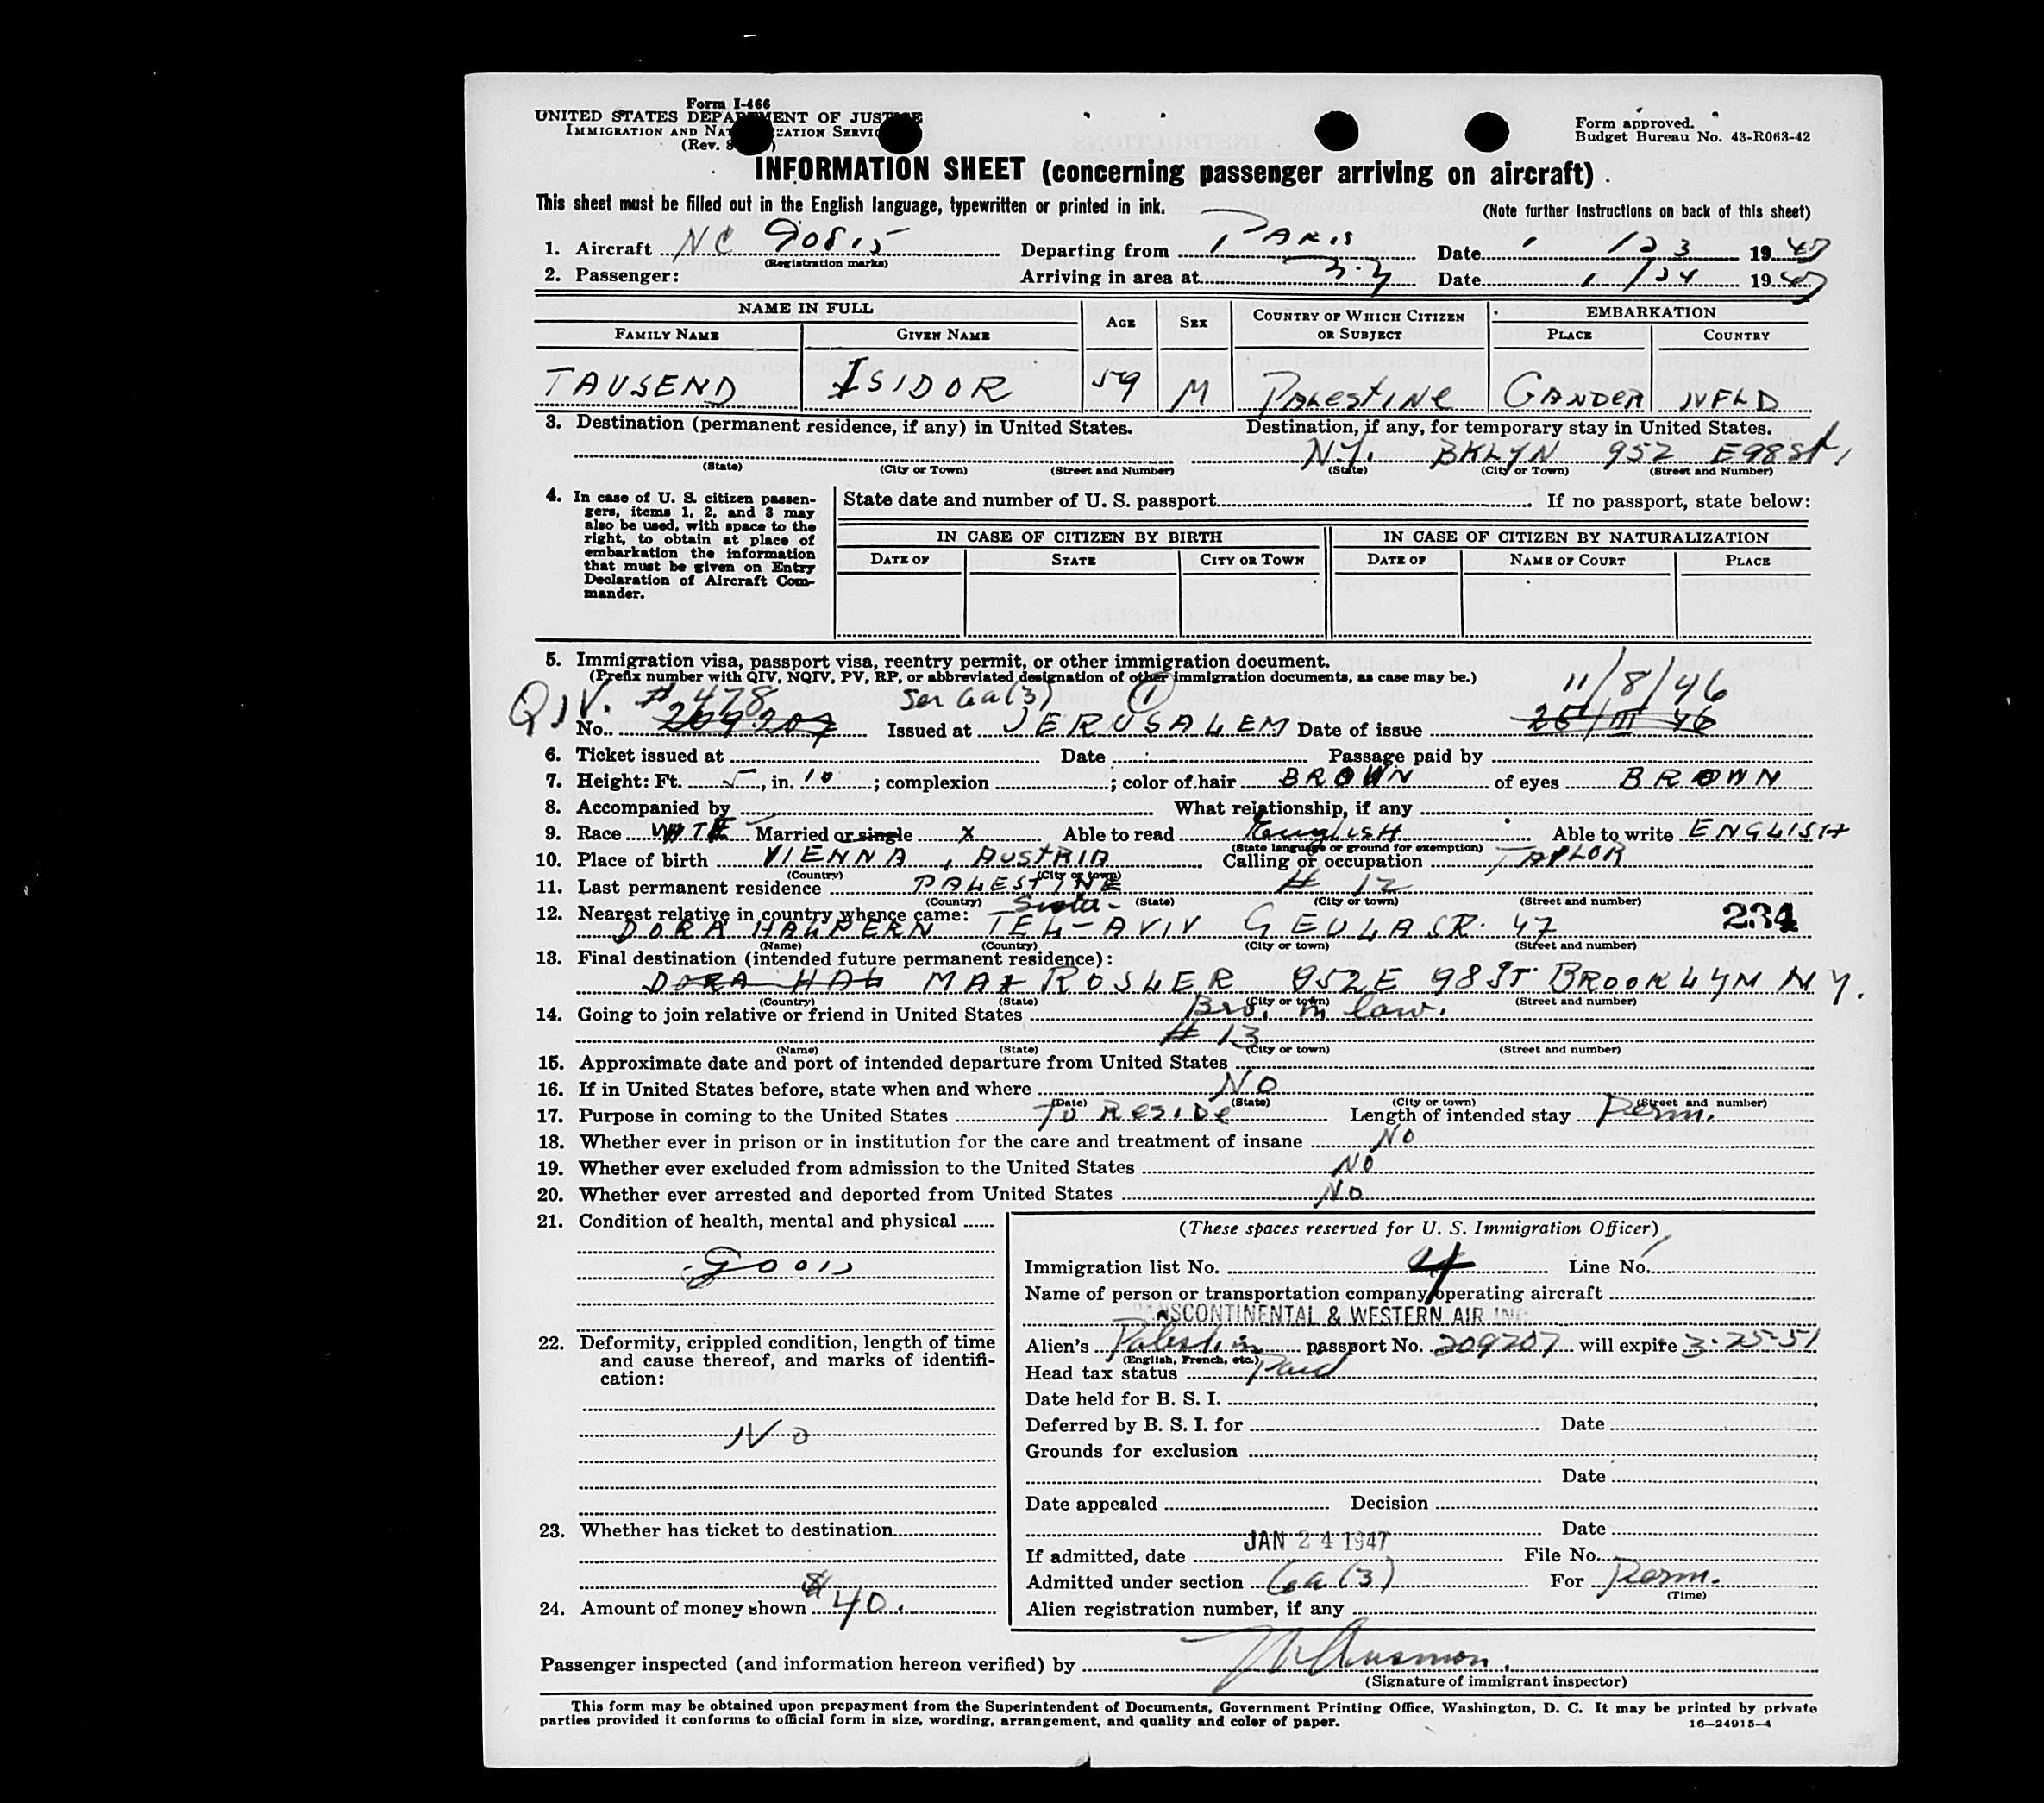 Form I-466
UNITED STATES DEPARTMENT OF JUSTICE
IMMIGRATION AND NATURALIZATION SERVICE
(Rev. 8
Form approved.
Budget Bureau No. 43-R063-42
INFORMATION SHEET (concerning passenger arriving on aircraft)
This sheet must be filled out in the English language, typewritten or printed in ink.
(Note further instructions on back of this sheet)
1. Aircraft NC 90815 Departing from PARIS Date 1/23 1947
(Registration marks)
2. Passenger: Arriving in area at Date 1/24 1947
NAME IN FULL
FAMILY NAME GIVEN NAME AGE SEX COUNTRY OF WHICH CITIZEN OR SUBJECT EMBARKATION PLACE COUNTRY
TAUSEND ISIDOR 59 M PALESTINE GANDER NFLD
3. Destination (permanent residence, if any) in United States. Destination, if any, for temporary stay in United States.
N.Y. BKLYN 952 E98St.
(State) (City or Town) (Street and Number) (State) (City or Town) (Street and Number)
4. In case of U. S. citizen passengers, items 1, 2, and 3 may also be used, with space to the right, to obtain at place of embarkation the information that must be given on Entry Declaration of Aircraft Commander.
State date and number of U. S. passport If no passport, state below:
IN CASE OF CITIZEN BY BIRTH IN CASE OF CITIZEN BY NATURALIZATION
DATE OF STATE CITY OR TOWN DATE OF NAME OF COURT PLACE
5. Immigration visa, passport visa, reentry permit, or other immigration document.
(Prefix number with QIV, NQIV, PV, RP, or abbreviated designation of other immigration documents, as case may be.)
QIV. # 478 Sec 6a(3) 1 11/8/46
No. 209207 Issued at JERUSALEM Date of issue 25/III 46
6. Ticket issued at Date Passage paid by
7. Height: Ft. 5, in. 10; complexion ; color of hair BROWN of eyes BROWN
8. Accompanied by What relationship, if any
9. Race WTE Married or single X Able to read English Able to write ENGLISH
(State language or ground for exemption)
10. Place of birth VIENNA, AUSTRIA Calling or occupation TAYLOR
(Country) (City or town)
11. Last permanent residence PALESTINE # 12
(Country) (State) (City or town) (Street and number)
12. Nearest relative in country whence came: Sister
DORA HALPERN TEL-AVIV GEULA SR. 47
234
(Name) (Country) (City or town) (Street and number)
13. Final destination (intended future permanent residence):
DORA HAL MAX ROSLER 952 E 98 ST. BROOKLYN N Y.
(Country) (State) (City or town) (Street and number)
14. Going to join relative or friend in United States Bro. in law.
# 13
(Name) (State) (City or town) (Street and number)
15. Approximate date and port of intended departure from United States
16. If in United States before, state when and where NO
(Date) (State) (City or town) (Street and number)
17. Purpose in coming to the United States TO RESIDE Length of intended stay Perm.
18. Whether ever in prison or in institution for the care and treatment of insane NO
19. Whether ever excluded from admission to the United States NO
20. Whether ever arrested and deported from United States NO
21. Condition of health, mental and physical
GOOD
22. Deformity, crippled condition, length of time and cause thereof, and marks of identification:
NO
23. Whether has ticket to destination
24. Amount of money shown $40.
(These spaces reserved for U. S. Immigration Officer)
Immigration list No. Line No.
Name of person or transportation company operating aircraft
TRANSCONTINENTAL & WESTERN AIR INC
Alien's Palestin passport No. 209207 will expire 3-25-51
(English, French, etc.)
Head tax status Paid
Date held for B. S. I.
Deferred by B. S. I. for Date
Grounds for exclusion
Date
Date appealed Decision
Date
If admitted, date JAN 24 1947 File No.
Admitted under section 6a(3) For Perm.
(Time)
Alien registration number, if any
Passenger inspected (and information hereon verified) by
(Signature of immigrant inspector)
This form may be obtained upon prepayment from the Superintendent of Documents, Government Printing Office, Washington, D. C. It may be printed by private
parties provided it conforms to official form in size, wording, arrangement, and quality and color of paper.
16—24915-4